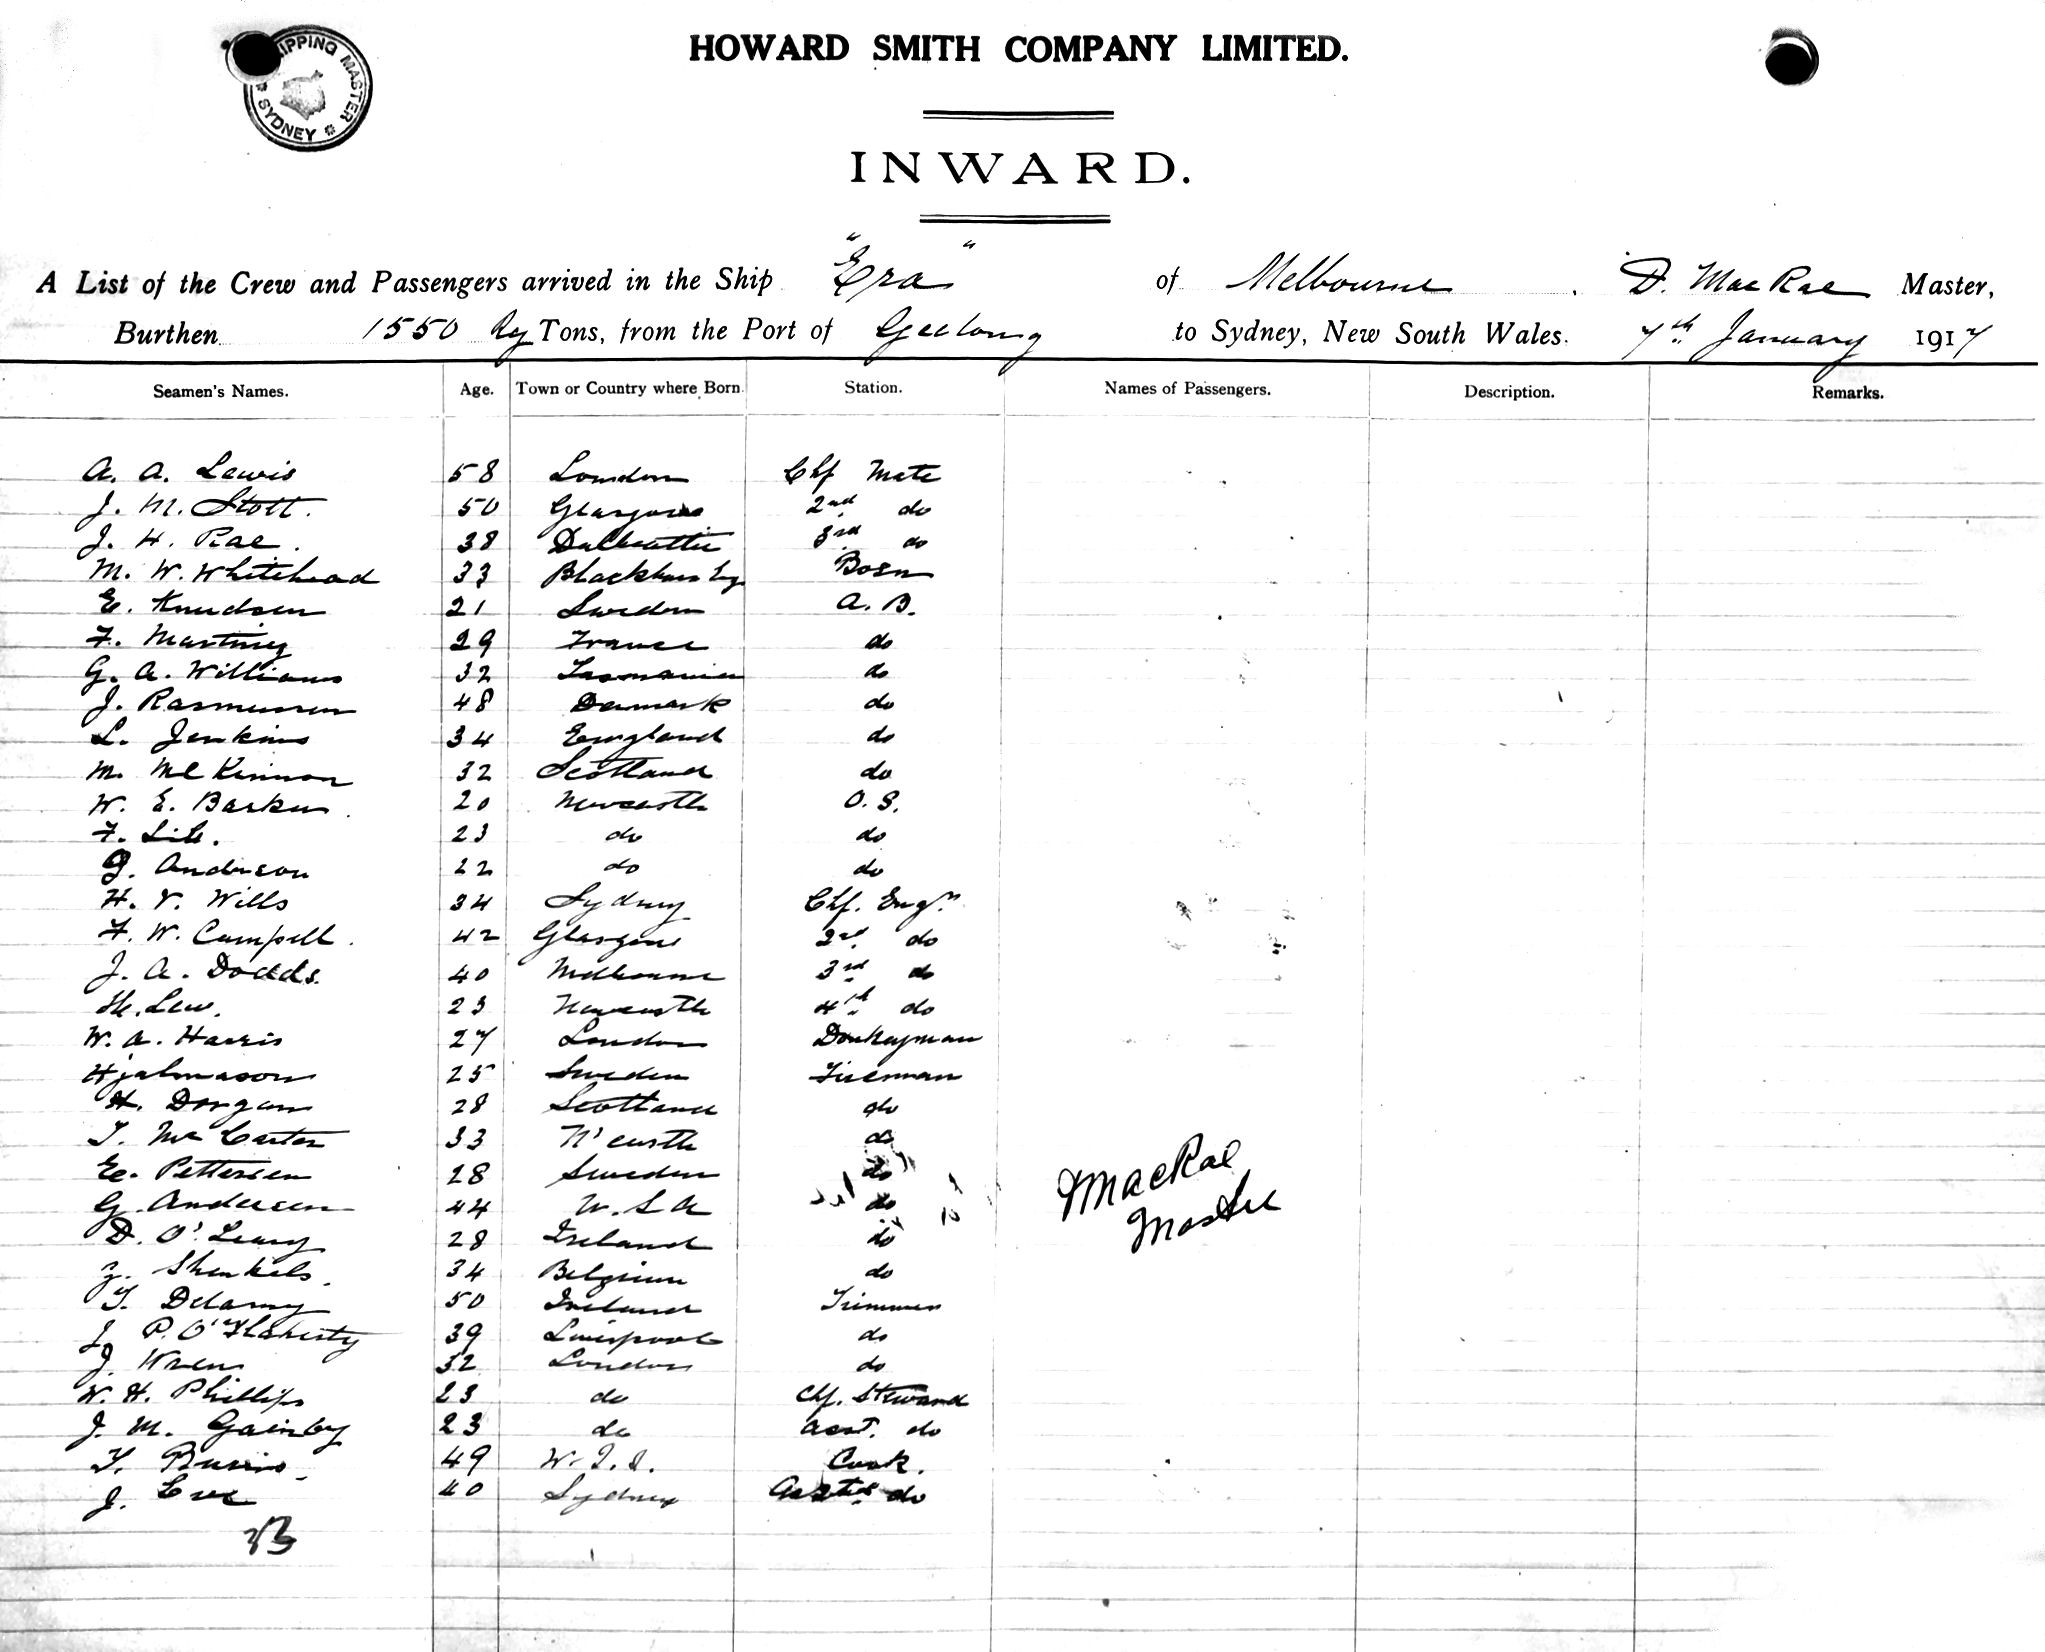 SHIPPING MASTER SYDNEY
HOWARD SMITH COMPANY LIMITED.
INWARD.
A List of the Crew and Passengers arrived in the Ship "Era" of Melbourne D. MacRae Master,
Burthen 1550 Reg Tons, from the Port of Geelong to Sydney, New South Wales. 7th January 1917
Seamen's Names. Age. Town or Country where Born. Station. Names of Passengers. Description. Remarks.
A. A. Lewis 58 London Chf Mate
J. M. Stott. 50 Glasgow 2nd do
J. H. Rae. 38 Dalbeattie 3rd do
M. W. Whitehead 33 Blackburn Eng Bosn
E. Knudsen 21 Sweden A. B.
F. Martiney 29 France do
G. A. Williams 32 Tasmania do
J. Rasmussen 48 Denmark do
L. Jenkins 34 England do
M. McKinnon 32 Scotland do
W. E. Barker. 20 Newcastle O. S.
F. 23 do do
G. Anderson 22 do do
H. V. Wills 34 Sydney Chf. Engr
F. W. Campell. 42 Glasgow 2nd do
J. A. Dodds. 40 Melbourne 3rd do
H. Lew. 23 Newcastle 4th do
W. A. Harris 27 London Donkeyman
Hjalmason 25 Sweden Fireman
H. Dorgan 28 Scotland do
T. McCarter 33 N'castle do
E. Pettersen 28 Sweden do
G. Andersen 44 U. S. A do
D. O'Leary 28 Ireland do
Z. Shenkels. 34 Belgium do
T. Delamy 50 Ireland Trimmer
J. P. O'Flaherty 39 Liverpool do
J. Wren 32 London do
W. H. Phillips 23 do Chf. Steward
J. M. Gainby 23 do Asst. do
T. 49 W. I. I. Cook.
J. 40 Sydney Assts do
33
MacRae
Master